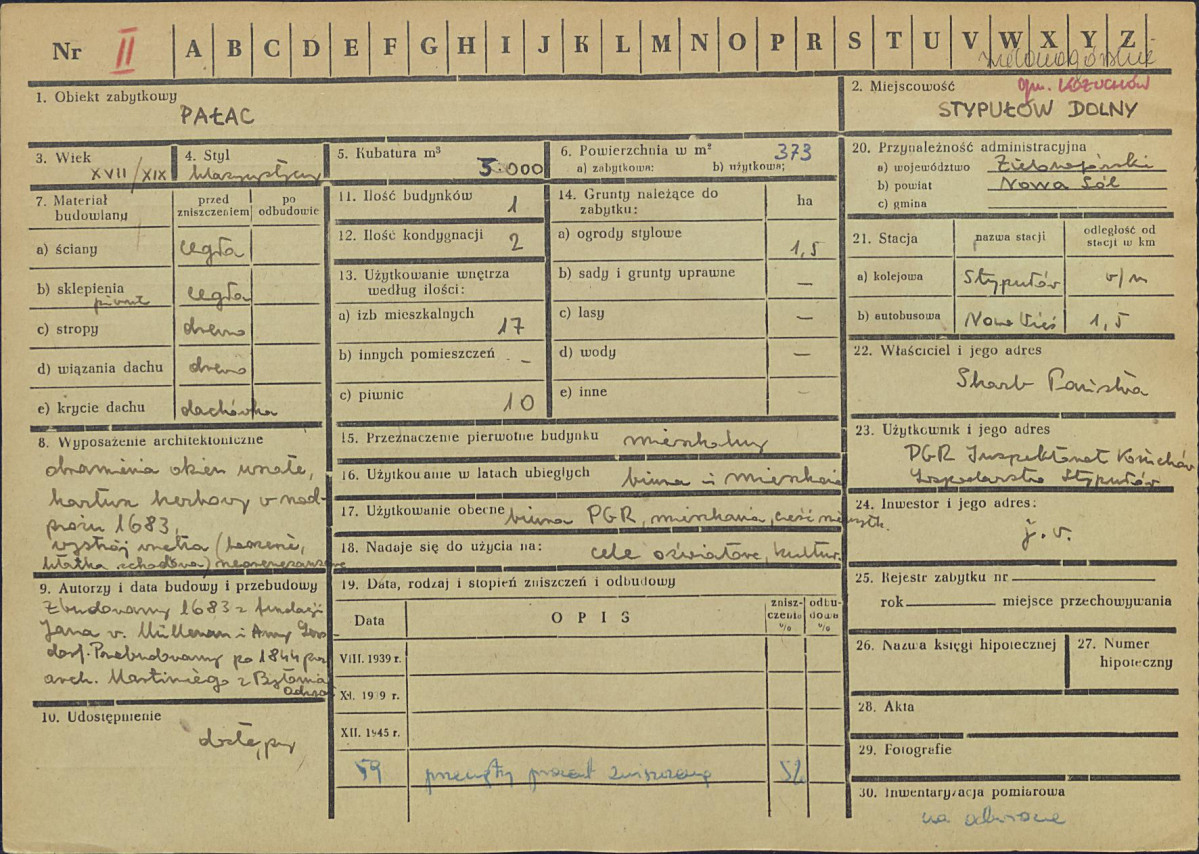 Nr II A B C D E F G H I J K L M N O P R S T U V W X Y Z
zielonogórskie
1. Obiekt zabytkowy
PAŁAC
2. Miejscowość gm. KOŻUCHÓW
STYPUŁÓW DOLNY
3. Wiek
XVII/XIX
4. Styl
klasycystyczny
5. Kubatura m³
5.000
6. Powierzchnia w m² 373
a) zabytkowa: b) użytkowa:
7. Materiał budowlany
przed zniszczeniem
po odbudowie
a) ściany cegła
b) sklepienia cegła
piwnic
c) stropy drewno
d) wiązania dachu drewno
e) krycie dachu dachówka
8. Wyposażenie architektoniczne
obramienia okien uszate,
kartusz herbowy w nad-
prożu 1683,
wystrój wnętrza
klatka schodowa) neorenesansowe
9. Autorzy i data budowy i przebudowy
Zbudowany 1683 z fundacji
Jana v. i Anny Gers
dorf. Przebudowany po 1844 przez
arch. Martiniego z Bytomia
Odrzań
10. Udostępnienie
dostępny
11. Ilość budynków 1
12. Ilość kondygnacji 2
13. Użytkowanie wnętrza
według ilości:
a) izb mieszkalnych 17
b) innych pomieszczeń -
c) piwnic 10
14. Grunty należące do
zabytku:
ha
a) ogrody stylowe 1,5
b) sady i grunty uprawne —
c) lasy —
d) wody —
e) inne —
15. Przeznaczenie pierwotne budynku mieszkalny
16. Użytkowanie w latach ubiegłych biura i mieszkania
17. Użytkowanie obecne biura PGR, mieszkania, część nieużytk.
18. Nadaje się do użycia na: cele oświatowe, kultur.
19. Data, rodzaj i stopień zniszczeń i odbudowy
Data
OPIS
znisz-
czenia
%
odbu-
dowa
%
VIII. 1939 r.
XI. 1939 r.
XII. 1945 r.
59 przeciętny procent zniszczenia 52
20. Przynależność administracyjna
a) województwo Zielonogórski
b) powiat Nowa Sól
c) gmina
21. Stacja
nazwa stacji
odległość od
stacji w km
a) kolejowa Stypułów v/m
b) autobusowa Nowa Wieś 1,5
22. Właściciel i jego adres
Skarb Państwa
23. Użytkownik i jego adres
PGR Inspektorat Kożuchów
Gospodarstwo Stypułów
24. Inwestor i jego adres:
j.v.
25. Rejestr zabytku nr
rok miejsce przechowywania
26. Nazwa księgi hipotecznej
27. Numer
hipoteczny
28. Akta
29. Fotografie
30. Inwentaryzacja pomiarowa
na odwrocie